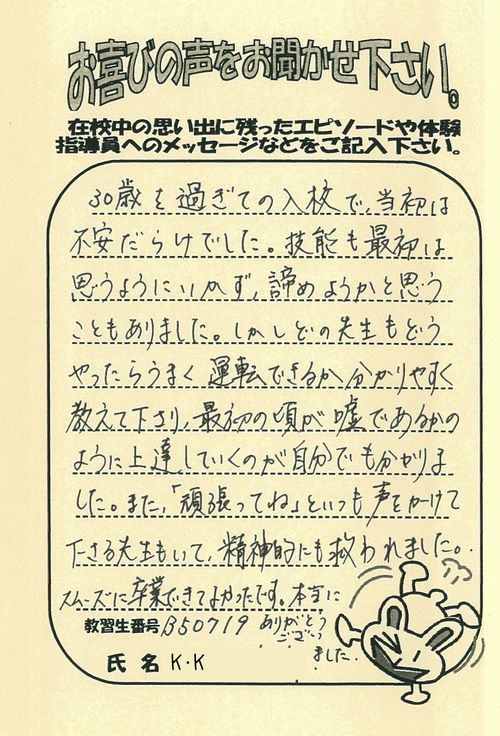 お喜びの声をお聞かせ下さい。
在校中の思い出に残ったエピソードや体験
指導員へのメッセージなどをご記入下さい。
30歳を過ぎての入校で、当初は
不安だらけでした。技能も最初は
思うようにいかず、諦めようかと思う
こともありました。しかしどの先生もどう
やったらうまく運転できるか分かりやすく
教えて下さり、最初の頃が嘘であるかの
ように上達していくのが自分でも分かりま
した。また、「頑張ってね」といつも声をかけて
下さる先生もいて、精神的にも救われました。
スムーズに卒業できてよかったです。本当に
ありがとう
ござい
ました。
教習生番号 B50719
氏名 K・K